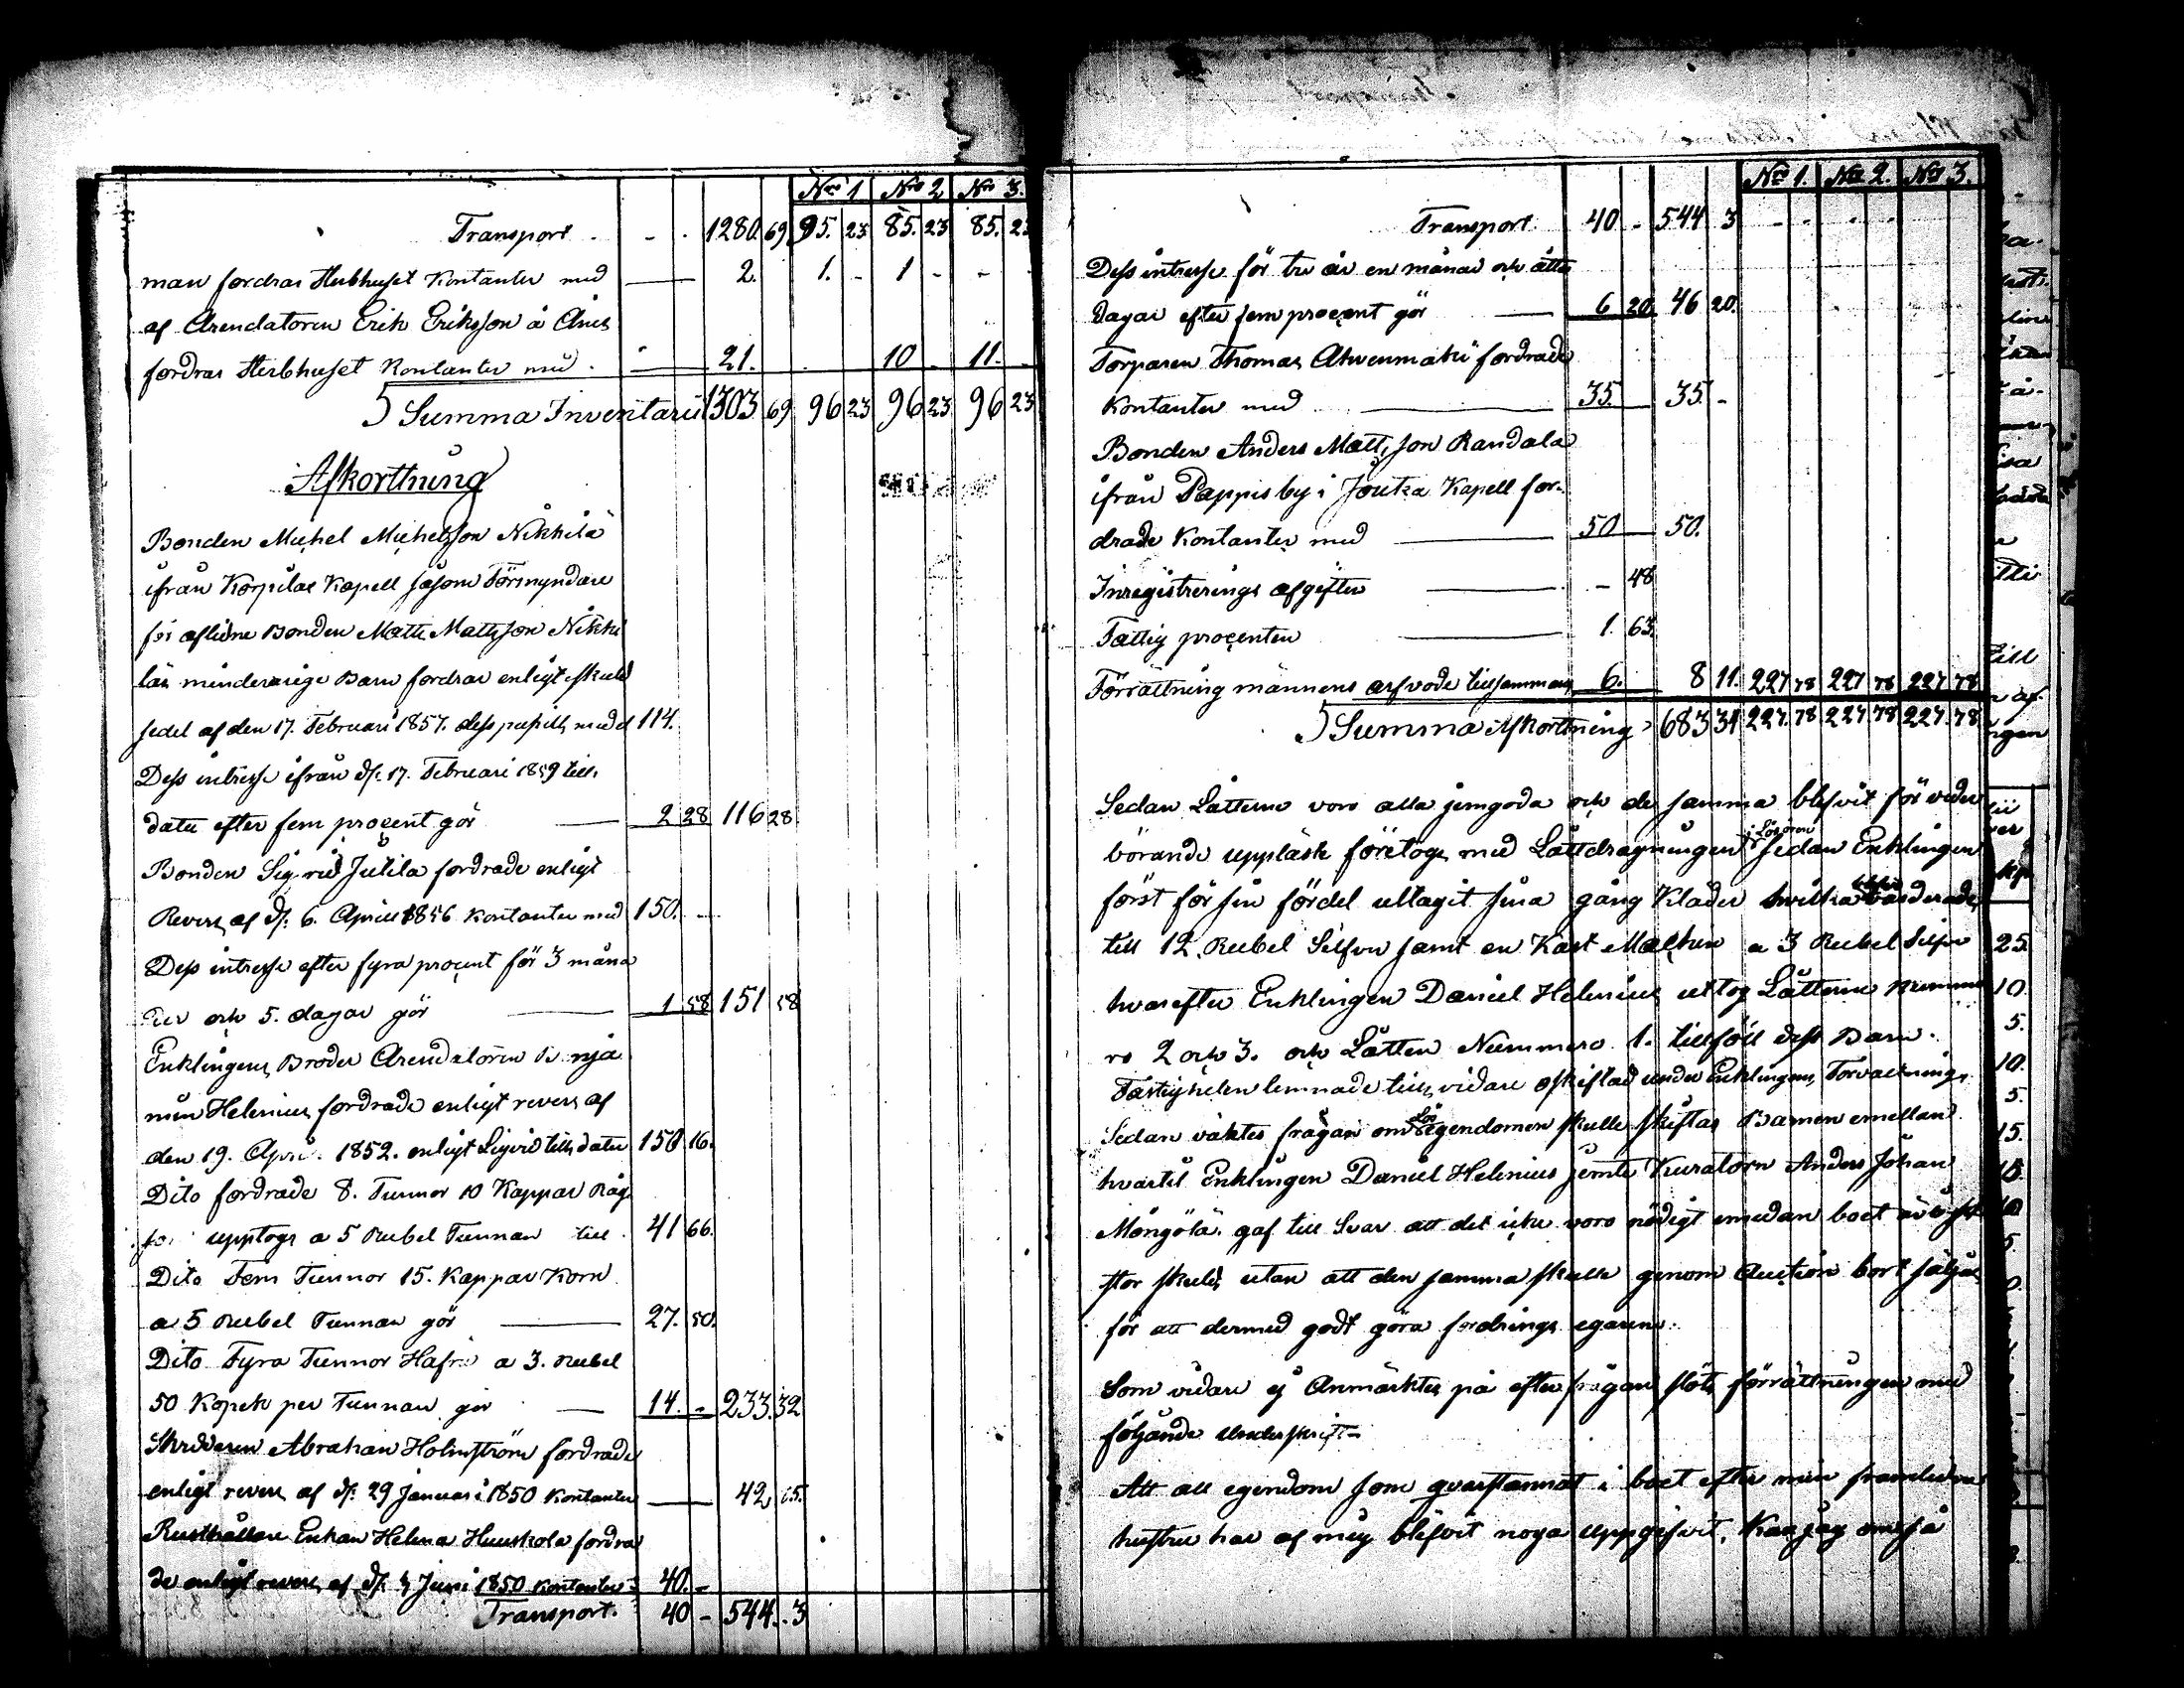 Nro 1 Nro 2 Nro 3.
Transport - - 1280. 69. 95. 23 85. 23 85. 23
man fordrar Sterbhuset Kontanter med 2. 1. - 1 - - -
af Arendatoren Erik Eriksson å Ånis
fordrar Sterbhuset Kontanter med 21. 10 - 11. -
Summa Inventarii 1303 69 96 23 96 23 96 23
Afkorttning
Bonden Michel Michelsson Nikkilä
ifrån Korpilax Kapell såsom Förmyndare
för aflidne Bonden Matts Mattsson Nikki
läs minderårige Barn fordrar enligt skuld
sedel af den 17. Februari 1857. dess pupills medel 114.
Dess intresse ifrån d: 17. Februari 1859 till
dato efter fem procent gör 2 28 116 28
Bonden Sigvid Jutila fordrade enligt
Revers af d: 6. April 1856 Kontanter med 150. -
Dess intresse efter fyra procent för 3 måna
der och 5. dagar gör 1 58 151 58
Enklingens Broder Arendatoren Benja
min Helenius fordrade enligt revers af
den 19. April 1852. enligt Liqvid till dato 150 16.
Dito fordrade 8. Tunnor 10 Kappar Råg
som upptogs a 5 Rubel Tunnan till 41 66.
Dito Fem Tunnor 15. Kappar Korn
a 5 Rubel Tunnan gör 27. 50.
Dito Fyra Tunnor Hafra a 3. Rubel
50 Kopek per Tunnan gör 14. - 233. 32
Skräddaren Abraham Holmström fordrade
enligt revers af d: 29 Januari 1850 Kontanter 42 65.
Rusthållare Enkan Helena Huuskola fordra
de enligt revers af d: 4 Juni 1850 Kontanter 40. -
Transport. 40 - 544. 3
Nro 1. Nro 2. Nro 3.
Transport. 40 - 544 3 - - - -
Dess intresse för tre år en månad och åtta
dagar efter fem procent gör 6 20. 46 20.
Torparen Thomas Ahvenmäki fordrade
Kontanter med 35. 35. -
Bonden Anders Mattsson Randala
ifrån Pappis by i Joutza Kapell for-
drade Kontanter med 50 50.
Inregistrerings afgiften - 48
Fattig procenten 1. 63.
Förrättning männens arfvode tillsammans 6. 8 11. 227 78 227 78 227 78
Summa Afkorttning 683 31 227. 78 227. 78 227. 78
Sedan Lotterne voro alla jemgoda och de samma blifvit för veder
börande uppläste företogs med Lottdragningen i Lösören sedan Enklingen
först för sin fördel uttagit sina gång Kläder hvilka blifvit värderade
till 12. Rubel Silfver samt en Häst Märr a 3 Rubel Silfver
hvarefter Enklingen Daniel Helenius uttog Lotterne Numme
ro 2 och 3. och Lotten Nummero 1. tillföll dess Barn.
Fastigheten lemnade tills vidare oskiftad under Enklingens Förvaltning.
Sedan väktes frågan om Lösegendomen skulle skiftas Barnen emellan
hvartil Enklingen Daniel Helenius jemte Kuratorn Anders Johan
Möngölä. gaf till Svar att det icke voro nödigt emedan boet är i så
stor skuld, utan att den samma skulle genom Auction bort säljas
för att dermed godt göra fordrings egarene.
Som vidare ej Anmärktes på efter frågan slöts förrättningen med
följande Underskrift =
Att all egendom som qvarstannat i boet efter min framledne
hustru har af mig blifvit noga uppgifvit, Kan jag om så